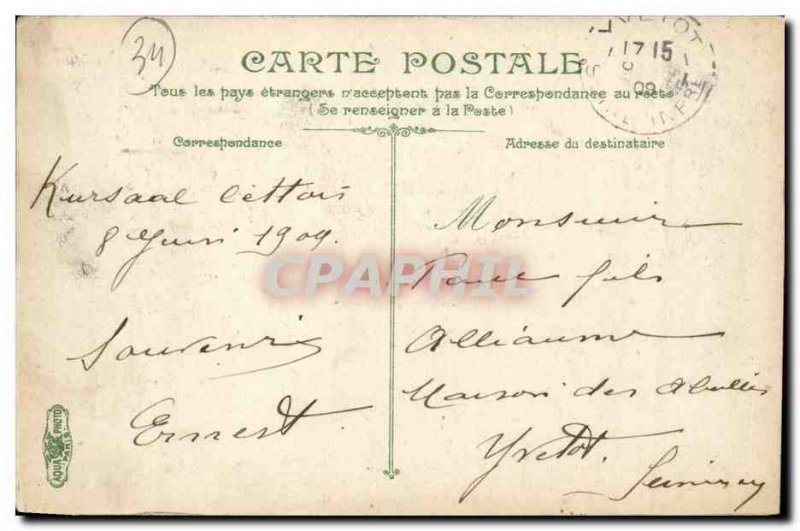 34
YVETOT
17 15
09
SEINE INFRE
CARTE POSTALE
Tous les pays étrangers n'acceptent pas la Correspondance au recto
(Se renseigner à la Poste)
Correspondance
Kursaal Cettois
8 Juin 1909.
Souvenir
Ernest
Adresse du destinataire
Monsieur
Paul fils
Alliaume
Maison des Abeilles
Yvetot.
Seine inf
CPAPHIL
AQUA PHOTO
PARIS